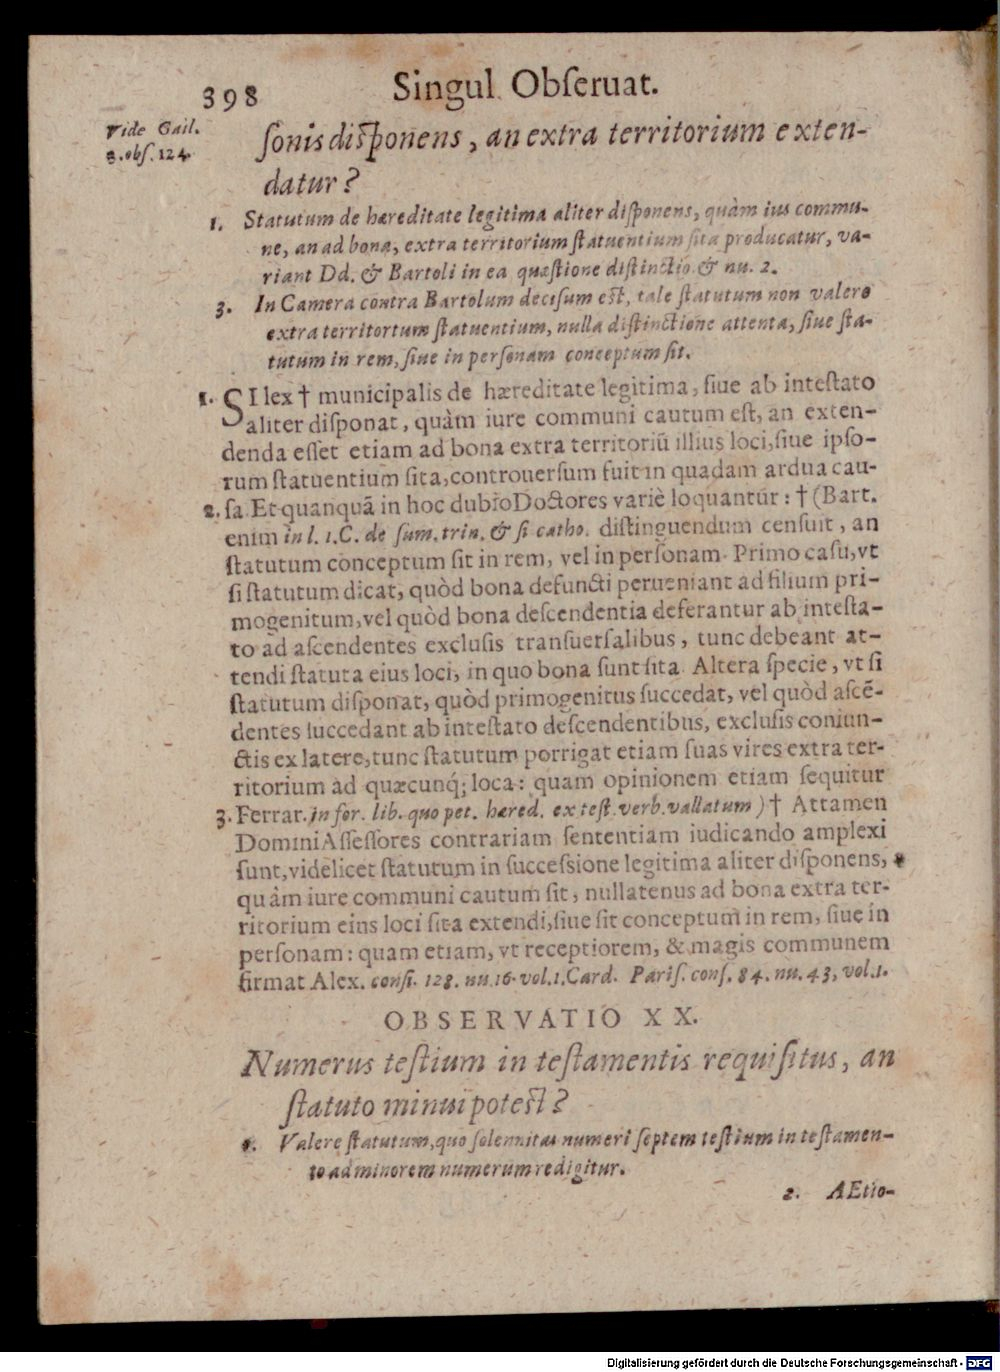 398 Singul. Obſeruat.
Vide Gail.
2. obſ. 124.
ſonis diſponens, an extra territorium exten-
datur?
1. Statutum de hæreditate legitima aliter diſponens, quàm ius commu-
ne, an ad bona, extra territorium ſtatuentium ſita producatur, va-
riant Dd. & Bartoli in ea quæſtione diſtinctio & nu. 2.
3. In Camera contra Bartolum deciſum eſt, tale ſtatutum non valere
extra territortum ſtatuentium, nulla diſtinctione attenta, ſiue ſta-
tutum in rem, ſiue in perſonam conceptum ſit.
1. SI lex † municipalis de hæreditate legitima, ſiue ab inteſtato
aliter diſponat, quàm iure communi cautum eſt, an exten-
denda eſſet etiam ad bona extra territoriũ illius loci, ſiue ipſo-
rum ſtatuentium ſita, controuerſum fuit in quadam ardua cau-
2. ſa. Et quanquã in hoc dubio Doctores variè loquantur: † (Bart.
enim in l. 1. C. de ſum. trin. & fi catho. diſtinguendum cenſuit, an
ſtatutum conceptum ſit in rem, vel in perſonam. Primo caſu, vt
ſi ſtatutum dicat, quòd bona defuncti perueniant ad filium pri-
mogenitum, vel quòd bona deſcendentia deferantur ab inteſta-
to ad aſcendentes excluſis tranſuerſalibus, tunc debeant at-
tendi ſtatuta eius loci, in quo bona ſunt ſita. Altera ſpecie, vt ſi
ſtatutum diſponat, quòd primogenitus ſuccedat, vel quòd aſcẽ-
dentes ſuccedant ab inteſtato deſcendentibus, excluſis coniun-
ctis ex latere, tunc ſtatutum porrigat etiam ſuas vires extra ter-
ritorium ad quæcunq́; loca: quam opinionem etiam ſequitur
3. Ferrar. in for. lib. quo pet. hæred. ex teſt. verb. vallatum) † Attamen
Domini Aſſeſſores contrariam ſententiam iudicando amplexi
ſunt, videlicet ſtatutum in ſucceſsione legitima aliter diſponens,
quàm iure communi cautum ſit, nullatenus ad bona extra ter-
ritorium eius loci ſita extendi, ſiue ſit conceptum in rem, ſiue in
perſonam: quam etiam, vt receptiorem, & magis communem
firmat Alex. conſi. 128. nu. 16. vol. 1. Card. Pariſ. conſ. 84. nu. 43, vol. 1.
OBSERVATIO XX.
Numerus teſtium in teſtamentis requiſitus, an
ſtatuto minui poteſt?
1. Valere ſtatutum, quo ſolennitas numeri ſeptem teſtium in teſtamen-
to ad minorem numerum redigitur.
2. AEtio-
Digitalisierung gefördert durch die Deutsche Forschungsgemeinschaft - DFG